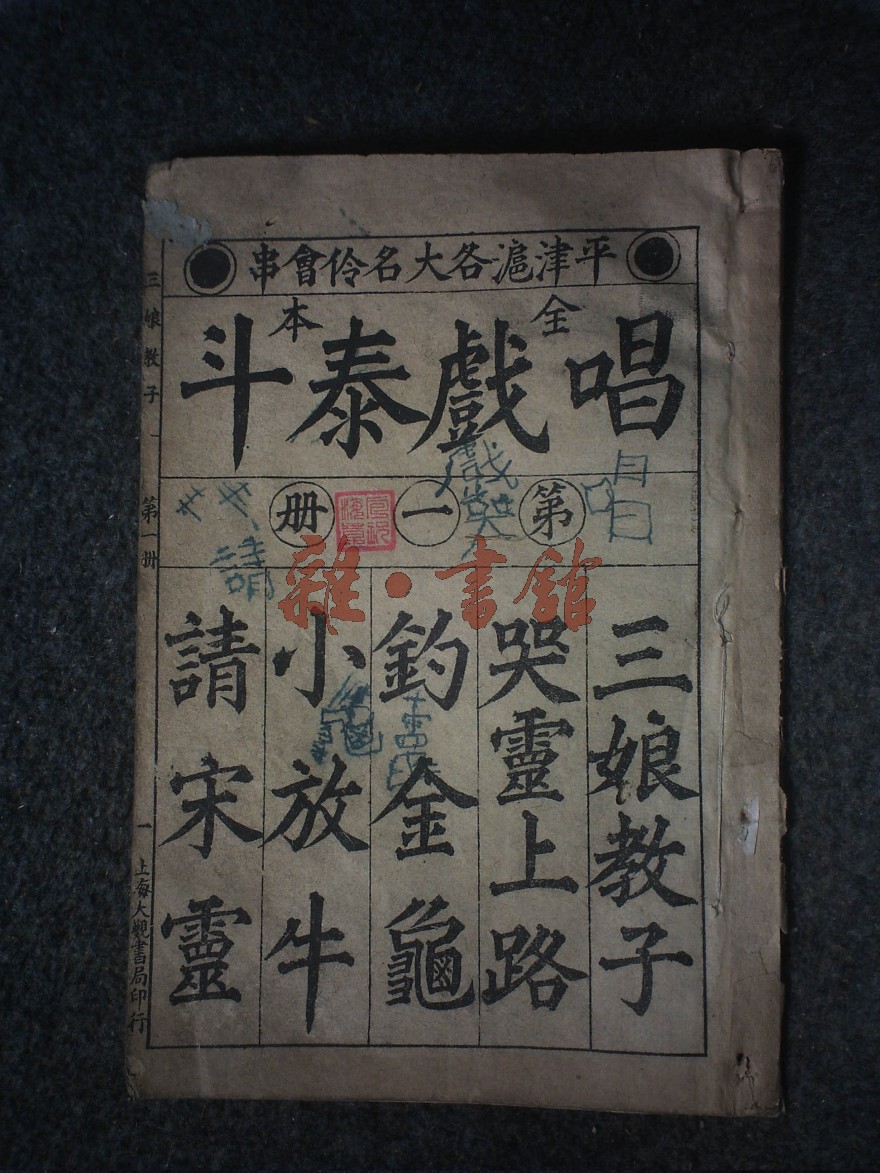 平津滬各大名伶會串
全本
唱戲泰斗
第一冊
三娘教子
哭靈上路
釣金龜
小放牛
請宋靈
三娘教子 一
第一册
一 上海大觀書局印行
雜·書館
唱
戲
請
龜
靈